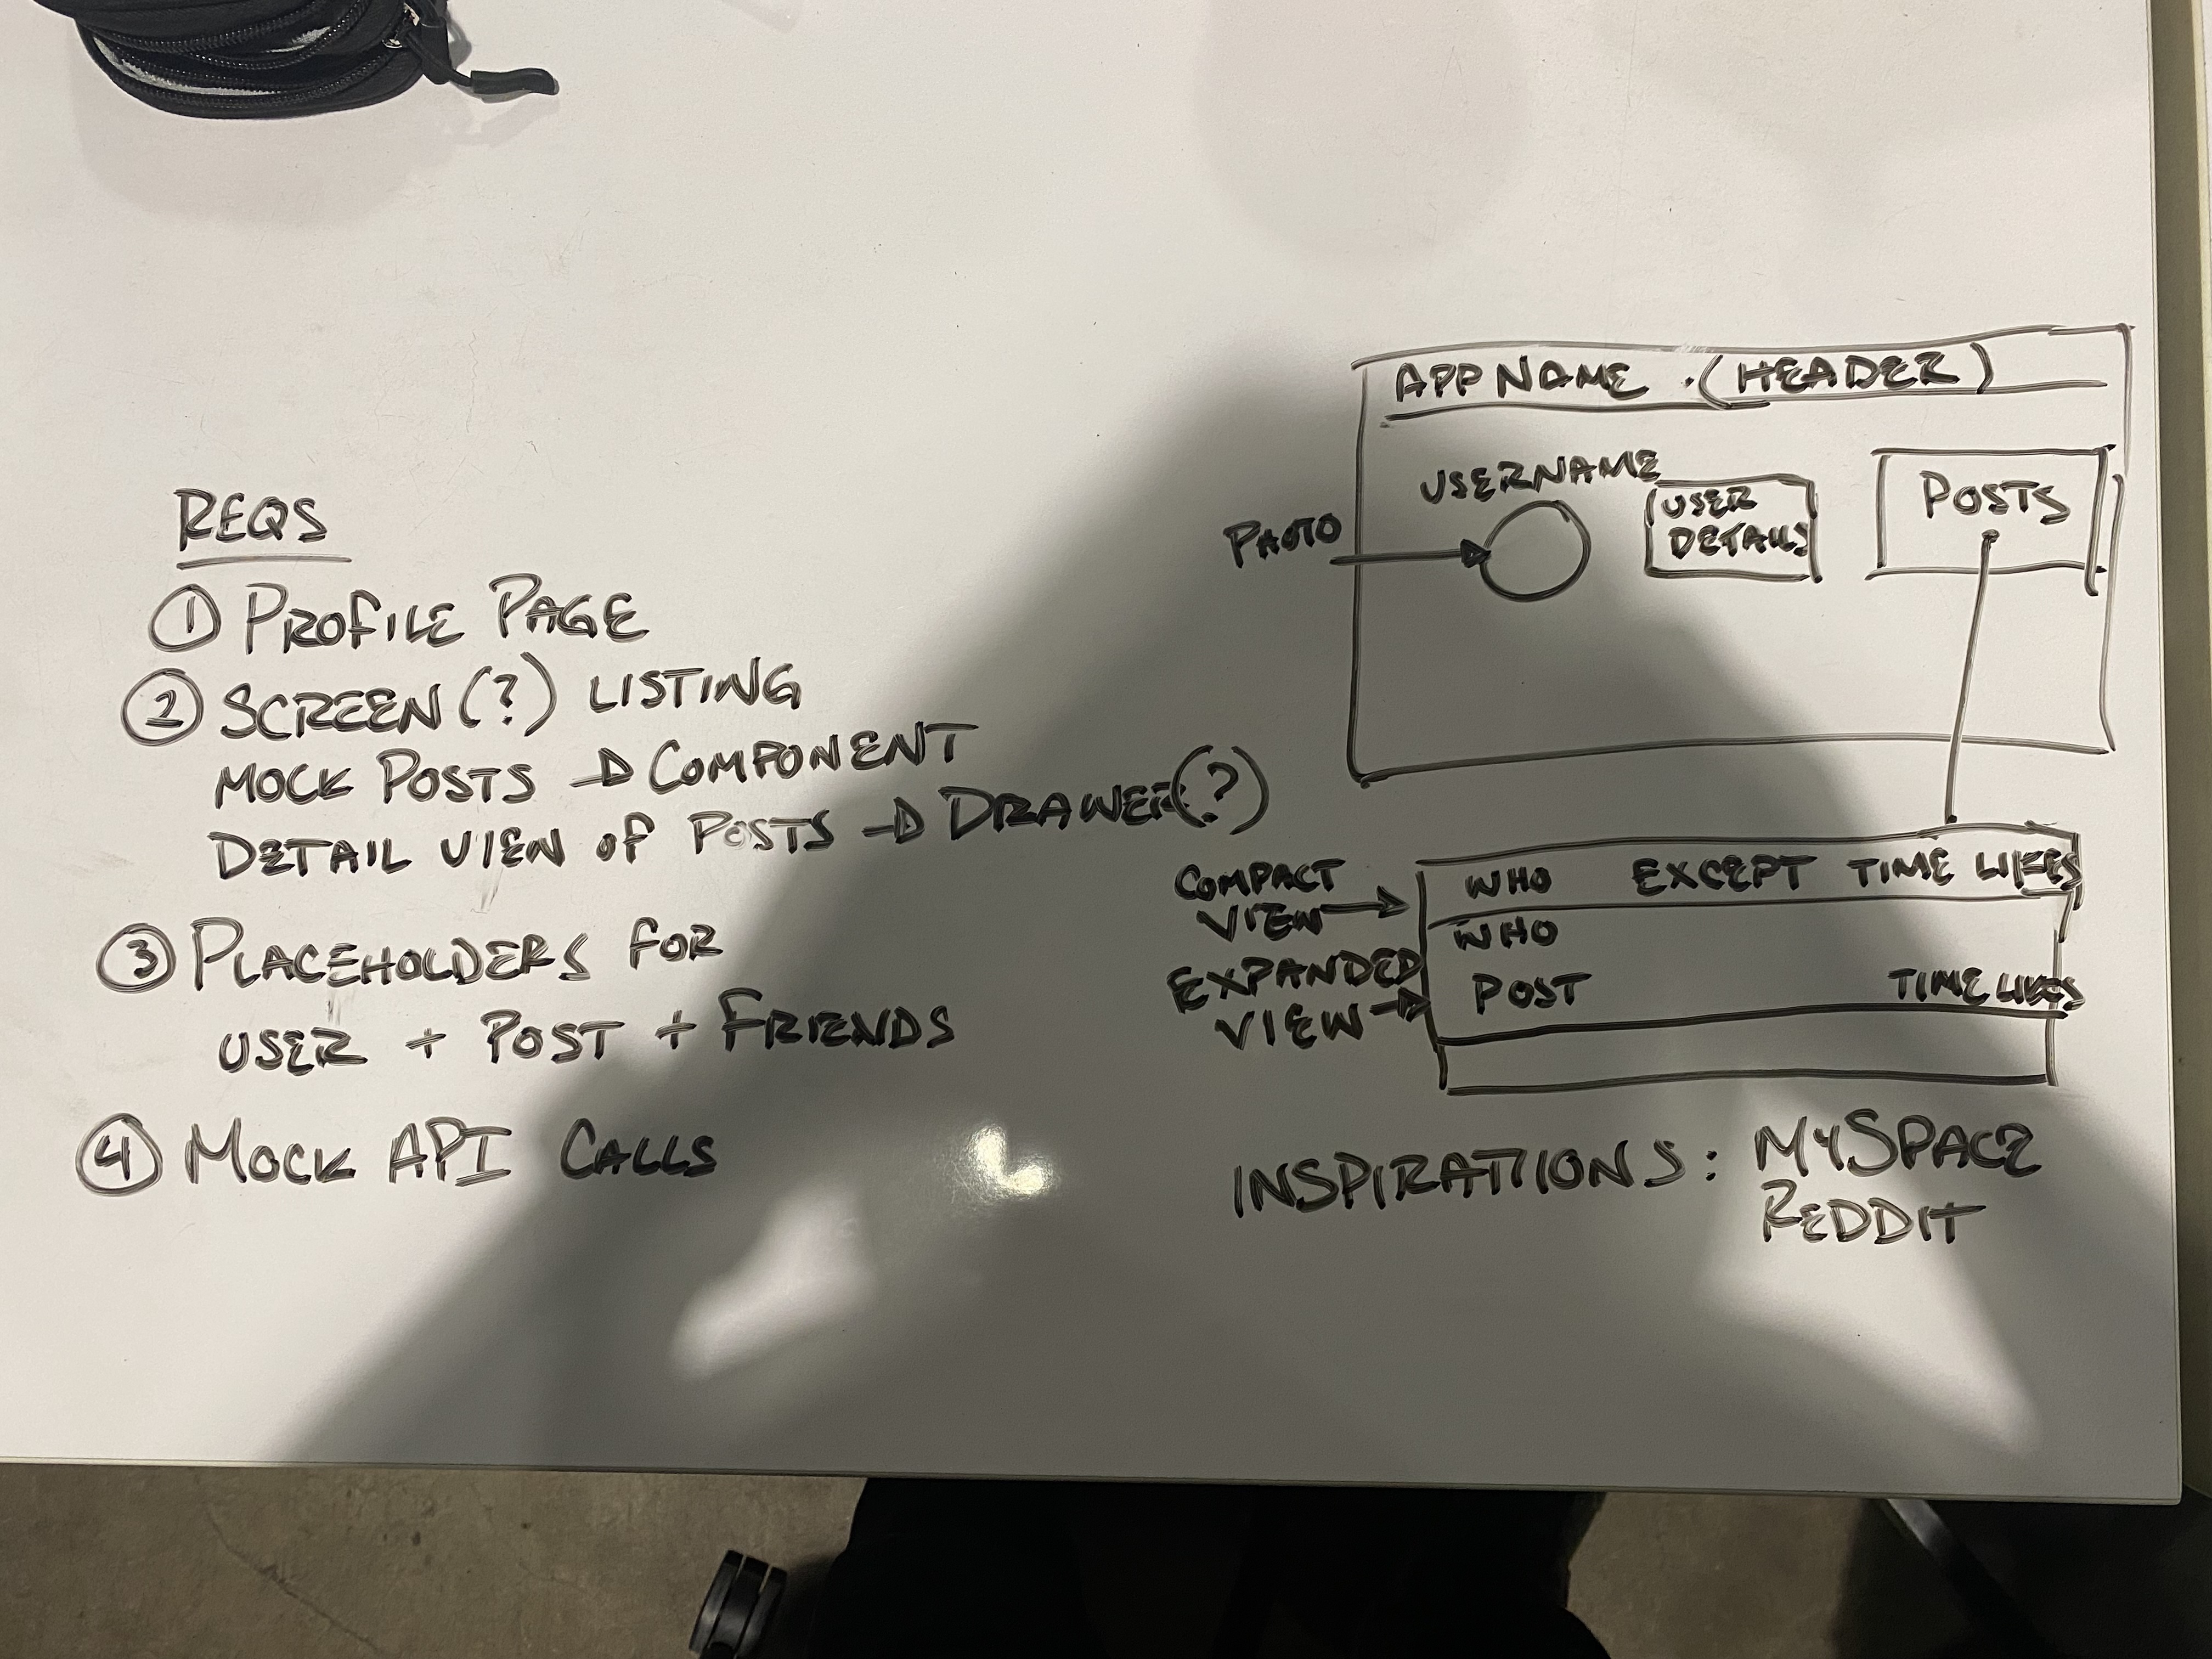 REQS
① PROFILE PAGE
② SCREEN (?) LISTING
MOCK POSTS → COMPONENT
DETAIL VIEW OF POSTS → DRAWER (?)
③ PLACEHOLDERS FOR
USER + POST + FRIENDS
④ MOCK API CALLS
APP NAME . (HEADER)
USERNAME
PHOTO
USER
DETAILS
POSTS
COMPACT
VIEW →
WHO EXCEPT TIME LIKES
EXPANDED
VIEW →
WHO
POST TIME LIKES
INSPIRATIONS : MYSPACE
REDDIT